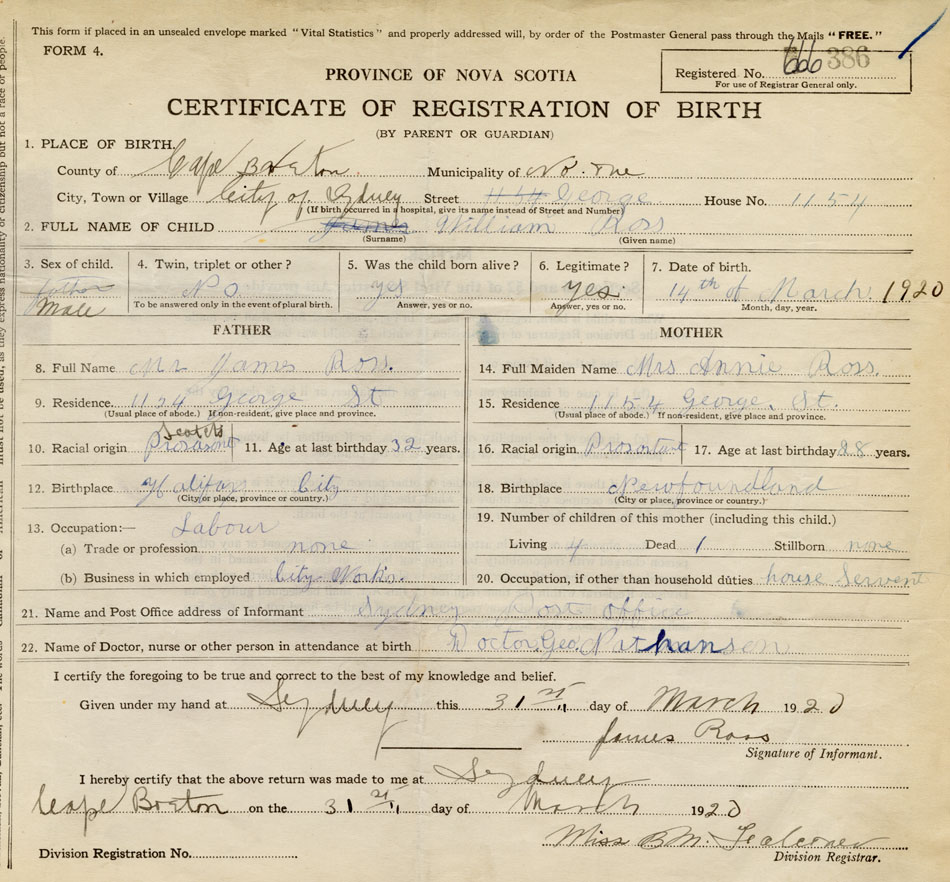 This form if placed in an unsealed envelope marked "Vital Statistics" and properly addressed will, by order of the Postmaster General pass through the Mails "FREE."
FORM 4.
666 386
Registered No.
For use of Registrar General only.
PROVINCE OF NOVA SCOTIA
CERTIFICATE OF REGISTRATION OF BIRTH
(BY PARENT OR GUARDIAN)
1. PLACE OF BIRTH.
County of Cape Breton Municipality of No. One
City, Town or Village City of Sydney Street 1154 George House No. 1154
(If birth occurred in a hospital, give its name instead of Street and Number)
2. FULL NAME OF CHILD James William Ross
(Surname) (Given name)
3. Sex of child. 4. Twin, triplet or other? 5. Was the child born alive? 6. Legitimate? 7. Date of birth.
Male No yes yes 14th of March 1920
To be answered only in the event of plural birth. Answer, yes or no. Answer, yes or no. Month, day, year.
FATHER
8. Full Name Mr James Ross.
9. Residence. 1154 George St
(Usual place of abode.) If non-resident, give place and province.
Scotch
10. Racial origin 11. Age at last birthday 32 years.
12. Birthplace Halifax City
(City or place, province or country.)
13. Occupation:— Labour
(a) Trade or profession none
(b) Business in which employed City Works.
MOTHER
14. Full Maiden Name Mrs Annie Ross.
15. Residence 1154 George. St.
(Usual place of abode.) If non-resident, give place and province.
16. Racial origin 17. Age at last birthday 28 years.
18. Birthplace Newfoundland
(City or place, province or country.)
19. Number of children of this mother (including this child.)
Living 4 Dead 1 Stillborn none
20. Occupation, if other than household duties house Servent
21. Name and Post Office address of Informant Sydney Post office
22. Name of Doctor, nurse or other person in attendance at birth Doctor Geo Nathansen
I certify the foregoing to be true and correct to the best of my knowledge and belief.
Given under my hand at Sydney this 31st day of March 1920
James Ross
Signature of Informant.
I hereby certify that the above return was made to me at Sydney
Cape Breton on the 31st day of March 1920
Miss B M. Falconer
Division Registrar.
Division Registration No.